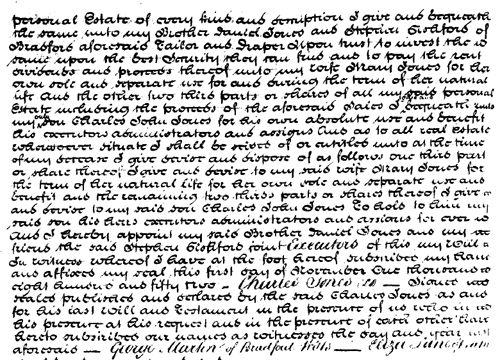 personal Estate of every kind and description I give and bequeath
the same unto my Brother Daniel Jones and Stephen Gifford of
Bradford aforesaid Tailor and Draper Upon trust to invest the
same upon the best Security they can find and to pay the rent
dividends and proceeds thereof unto my wife Mary Jones for her
own sole and separate use for and during the term of her natural
life And the other two third parts or shares of all my said personal
Estate including the proceeds of the aforesaid Sales I bequeath unto
my son Charles John Jones for his own absolute use and benefit
his executors administrators and assigns And as to all real Estate
whatsoever situate I shall be seised of or entitled unto at the time
of my decease I give devise and dispose of as follows one third part
or share thereof I give and devise to my said wife Mary Jones for
the term of her natural life for her own sole and separate use and
benefit and the remaining two thirds parts or shares thereof I give
and devise to my said son Charles John Jones To hold to him my
said son his heirs executors administrators and assigns for ever
And I hereby appoint my said Brother Daniel Jones and my
friend the said Stephen Gifford joint Executors of this my Will
In witness whereof I have at the foot hereof subscribed my hand
and affixed my seal this first day of November One thousand
eight hundred and fifty two — Charles Jones — Signed
sealed published and declared by the said Charles Jones as and
for his last Will and Testament in the presence of us who in
his presence at his request and in the presence of each other have
hereto subscribed our names as witnesses the day and year
aforesaid — George Martin of Bradford Wilts — Eliza